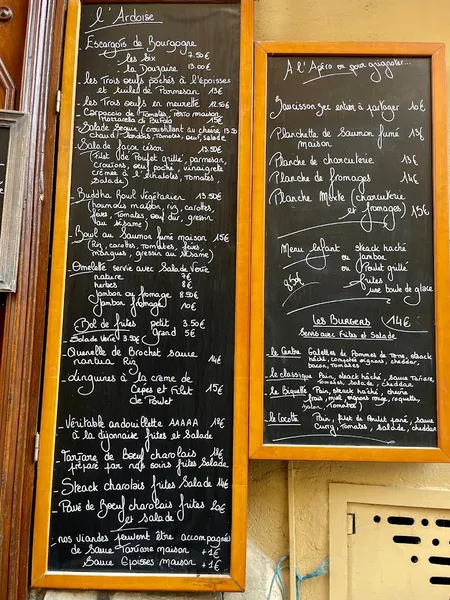 L'Ardoise
Escargots de Bourgogne
les six 7.50€
la Douzaine 13.00€
_ Les Trois oeufs pochés à l'époisses
et tuile de Parmesan 13€
_ Les Trois oeufs en meurette 12.50€
_ Carpaccio de Tomates, pesto maison
Mozzarella di Bufala 15€
_ Salade Seguin (croustillant au chèvre 13.50
chaud, Tomates, oeuf, salade
_ Salade façon césar 13.50€
(Filet de Poulet grillé, parmesan,
croutons, oeuf poché, vinaigrette
crème à l'échalotes, Tomates
Salade)
_ Buddha Bowl Végétarien 13.50€
(houmous maison, riz, carottes,
fèves, Tomates, oeuf dur, gressin
au sésame)
_ Bowl au Saumon fumé maison 15€
(Riz, carottes, tomates, fèves,
mangues, gressin au sésame)
_ Omelette servie avec Salade verte
nature 7€
herbes 8€
Jambon ou fromage 8.50€
Jambon fromage 10€
_ Bol de frites petit 3.50€
grand 5€
Salade verte 3.50€
_ Quenelle de Brochet sauce
nantua Riz 14€
_ Linguines à la crème de
Cèpes et Filet 15€
de Poulet
_ Véritable andouillette AAAAA 18€
à la dijonnaise frites et Salade
_ Tartare de Boeuf charolais
préparé par nos soins frites Salade
_ Steack charolais frites Salade 14€
_ Pavé de Boeuf charolais frites 20€
et salade
nos viandes peuvent être accompagnées
de Sauce Tartare maison +1€
Sauce Epoisses maison +1€
A l'Apéro ou pour grignoter...
Saucisson sec entier à partager 10€
Planchette de Saumon fumé 13€
maison
Planche de charcuterie 13€
Planche de fromages 14€
Planche Mixte (charcuterie
et fromages) 15€
Menu Enfant Steack haché
ou Jambon
ou Poulet grillé
9.50€ frites
une boule de glace
Les Burgers 14€
Servis avec Frites et Salade
_ le Centre Galettes de Pommes de Terre, steack
haché, oignons rouges, cheddar,
bacon, Tomates
_ le classique Pain, Steak haché, sauce Tartare,
Tomates, salade, cheddar
_ le Biquette Pain, steack haché, chèvre
frais, miel, oignons rouge, roquette,
Tomates)
_ le Cocotte Pain, filet de Poulet pané, sauce
Curry, Tomates, salade, cheddar